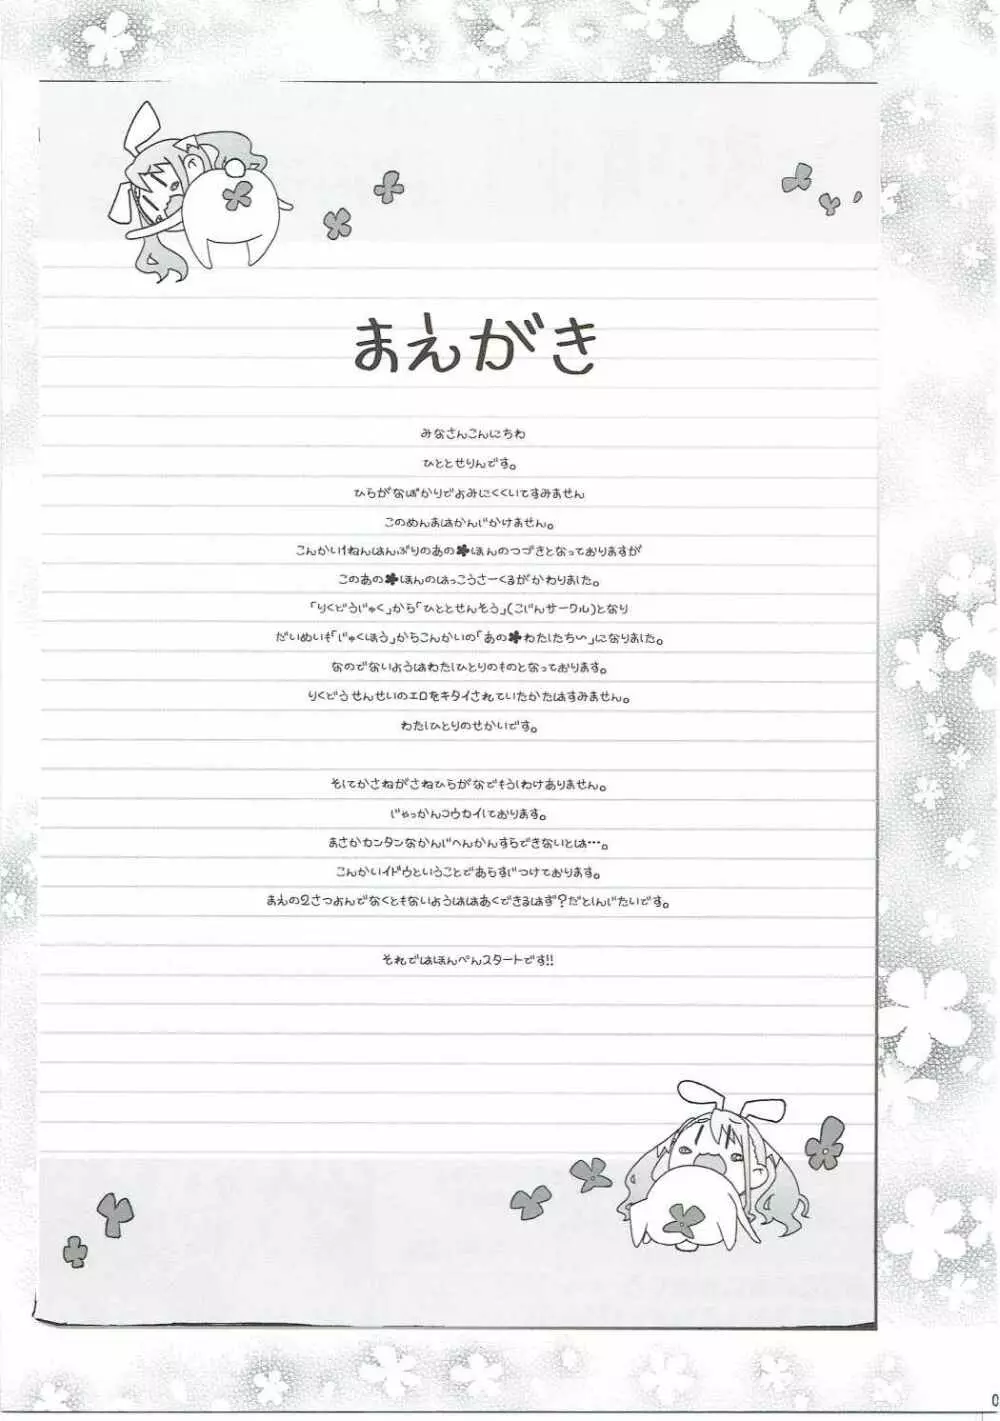 まえがき
みなさんこんにちわ
ひととせりんです。
ひらがなばかりでよみにくくいてすみません
このめんまはかんじかけません。
こんかい1ねんはんぶりのあの✤ほんのつづきとなっておりますが
このあの✤ほんのはっこうさーくるがかわりました。
「りくどうじゅく」から「ひととせんそう」(こじんサークル)となり
だいめいも「じゅくほう」からこんかいの「あの✤わたしたち〜」になりました。
なのでないようはわたしひとりのものとなっております。
りくどうせんせいのエロをキタイされていたかたはすみません。
わたしひとりのせかいです。
そしてかさねがさねひらがなでもうしわけありません。
じゃっかんコウカイしております。
まさかカンタンなかんじへんかんすらできないとは…。
こんかいイドウということであらすじつけております。
まえの2さつよんでなくともないようははあくできるはず?だとしんじたいです。
それではほんぺんスタートです!!
0